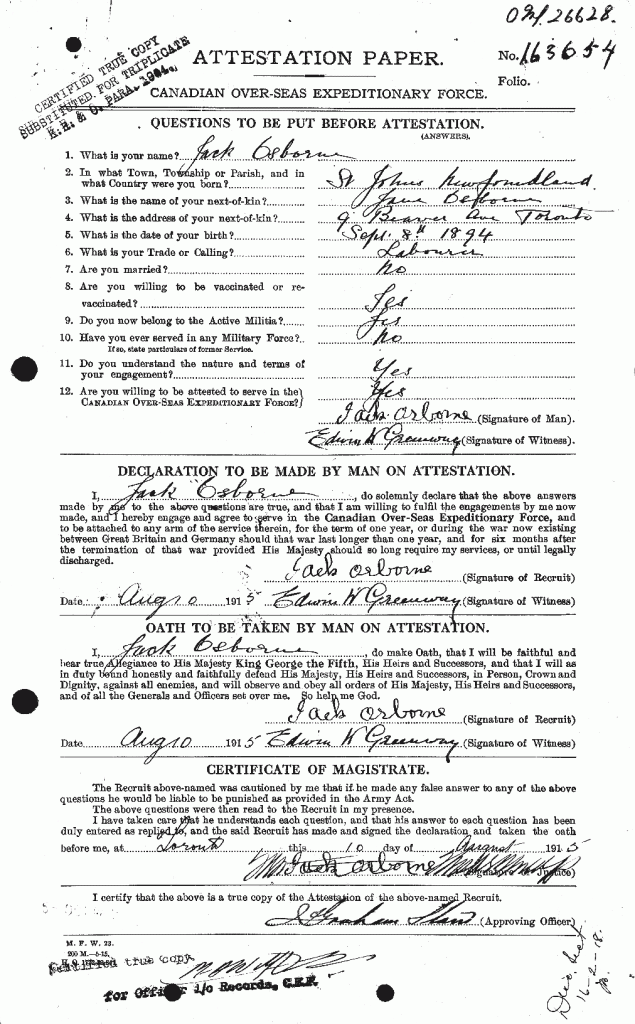 O M 26628.
CERTIFIED TRUE COPY
SUBSTITUTED FOR TRIPLICATE
ATTESTATION PAPER.
No. 163654
Folio.
CANADIAN OVER-SEAS EXPEDITIONARY FORCE.
QUESTIONS TO BE PUT BEFORE ATTESTATION.
(ANSWERS).
1. What is your name? Jack Osborne
2. In what Town, Township or Parish, and in
what Country were you born? St Johns Newfoundland.
3. What is the name of your next-of-kin? Jane Osborne
4. What is the address of your next-of-kin? 9 Beaver Ave Toronto
5. What is the date of your birth? Sept. 8th 1894
6. What is your Trade or Calling? Labourer
7. Are you married? No
8. Are you willing to be vaccinated or re-
vaccinated? Yes
9. Do you now belong to the Active Militia? Yes
10. Have you ever served in any Military Force? No
If so, state particulars of former Service.
11. Do you understand the nature and terms of
your engagement? Yes
12. Are you willing to be attested to serve in the
CANADIAN OVER-SEAS EXPEDITIONARY FORCE? Yes
Jack Osborne (Signature of Man).
Edwin W Greenway (Signature of Witness).
DECLARATION TO BE MADE BY MAN ON ATTESTATION.
I, Jack Osborne, do solemnly declare that the above answers
made by me to the above questions are true, and that I am willing to fulfil the engagements by me now
made, and I hereby engage and agree to serve in the Canadian Over-Seas Expeditionary Force, and
to be attached to any arm of the service therein, for the term of one year, or during the war now existing
between Great Britain and Germany should that war last longer than one year, and for six months after
the termination of that war provided His Majesty should so long require my services, or until legally
discharged.
Jack Osborne (Signature of Recruit)
Date Aug 10 1915 Edwin W Greenway (Signature of Witness)
OATH TO BE TAKEN BY MAN ON ATTESTATION.
I, Jack Osborne, do make Oath, that I will be faithful and
bear true Allegiance to His Majesty King George the Fifth, His Heirs and Successors, and that I will as
in duty bound honestly and faithfully defend His Majesty, His Heirs and Successors, in Person, Crown and
Dignity, against all enemies, and will observe and obey all orders of His Majesty, His Heirs and Successors,
and of all the Generals and Officers set over me. So help me God.
Jack Osborne (Signature of Recruit)
Date Aug 10 1915 Edwin W Greenway (Signature of Witness)
CERTIFICATE OF MAGISTRATE.
The Recruit above-named was cautioned by me that if he made any false answer to any of the above
questions he would be liable to be punished as provided in the Army Act.
The above questions were then read to the Recruit in my presence.
I have taken care that he understands each question, and that his answer to each question has been
duly entered as replied to, and the said Recruit has made and signed the declaration and taken the oath
before me, at Toronto this 10 day of August 1915
Jack Osborne (Signature of Justice)
I certify that the above is a true copy of the Attestation of the above-named Recruit.
(Approving Officer)
M. F. W. 23.
200 M.—8-15.
Certified true copy
for Officer i/c Records, C.E.F.
16-2-18.